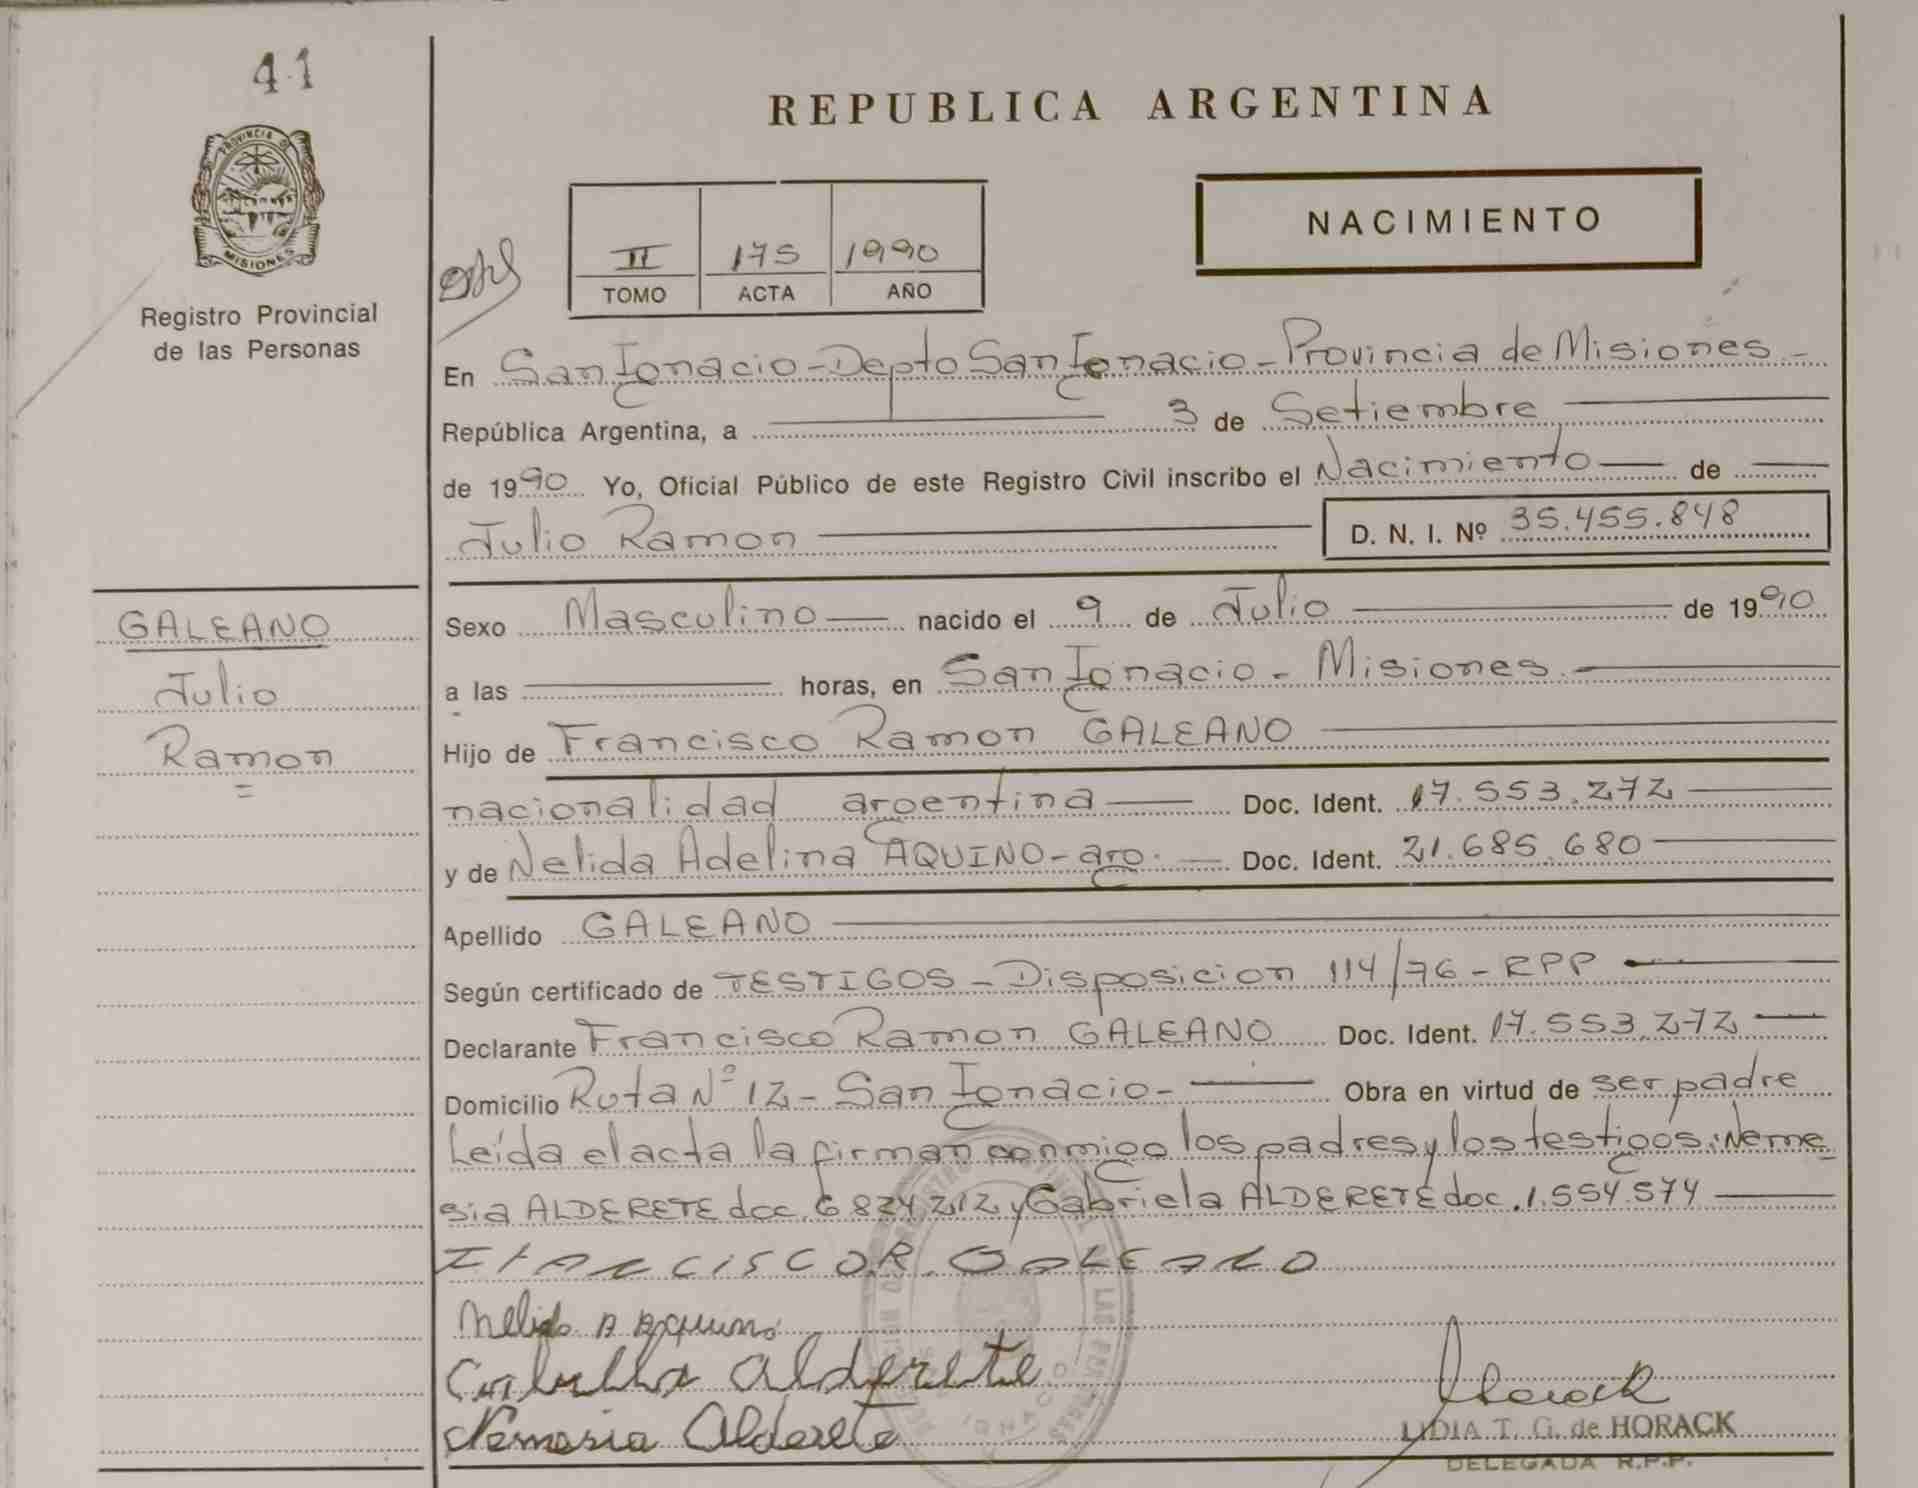 41
PROVINCIA DE
MISIONES
Registro Provincial
de las Personas
GALEANO
Julio
Ramon
REPUBLICA ARGENTINA
NACIMIENTO
II 175 1990
TOMO ACTA AÑO
En San Ignacio - Depto San Ignacio - Provincia de Misiones -
República Argentina, a 3 de Setiembre
de 1990 Yo, Oficial Público de este Registro Civil inscribo el Nacimiento de
Julio Ramon D. N. I. Nº 35.455.848
Sexo Masculino nacido el 9 de Julio de 1990
a las horas, en San Ignacio - Misiones
Hijo de Francisco Ramon GALEANO
nacionalidad argentina Doc. Ident. 17.553.272
y de Nelida Adelina AQUINO - arg. Doc. Ident. 21.685.680
Apellido GALEANO
Según certificado de TESTIGOS - Disposicion 114/76 - RPP
Declarante Francisco Ramon GALEANO Doc. Ident. 17.553.272
Domicilio Ruta Nº 12 - San Ignacio - Obra en virtud de ser padre
Leída el acta la firman conmigo los padres y los testigos: Neme
sia ALDERETE doc. 6.824.212 y Gabriela ALDERETE doc. 1.554.574
FRANCISCO R. GALEANO
Nelida A Aquino
Alderete
Nemesia Alderete
Horack
LIDIA T. G. de HORACK
DELEGADA R.P.P.